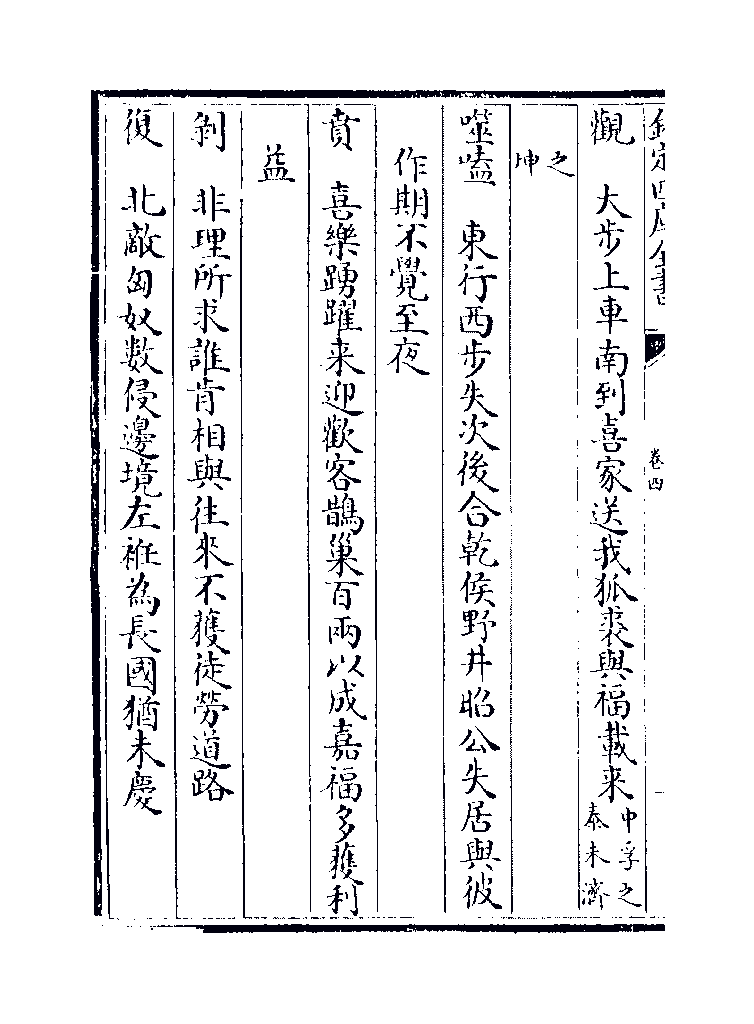 欽定四庫全書 卷四
觀 大步上車南到喜家送我狐裘與福載来 中孚之 泰未濟
之 坤
噬嗑 東行西步失次後合乾侯野井昭公失居與彼
作期不覺至夜
賁 喜樂踴躍来迎歡客鵲巢百兩以成嘉福多獲利
益
剥 非理所求誰肯相與往來不獲徒勞道路
復 北敵匈奴數侵邊境左袵為長國猶未慶